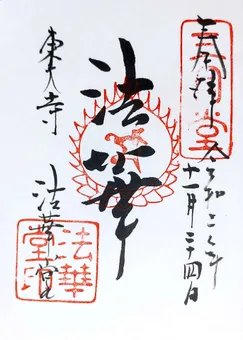 奉拝
令和年
十一月二十四日
法華
東大寺
法華堂
法華堂印